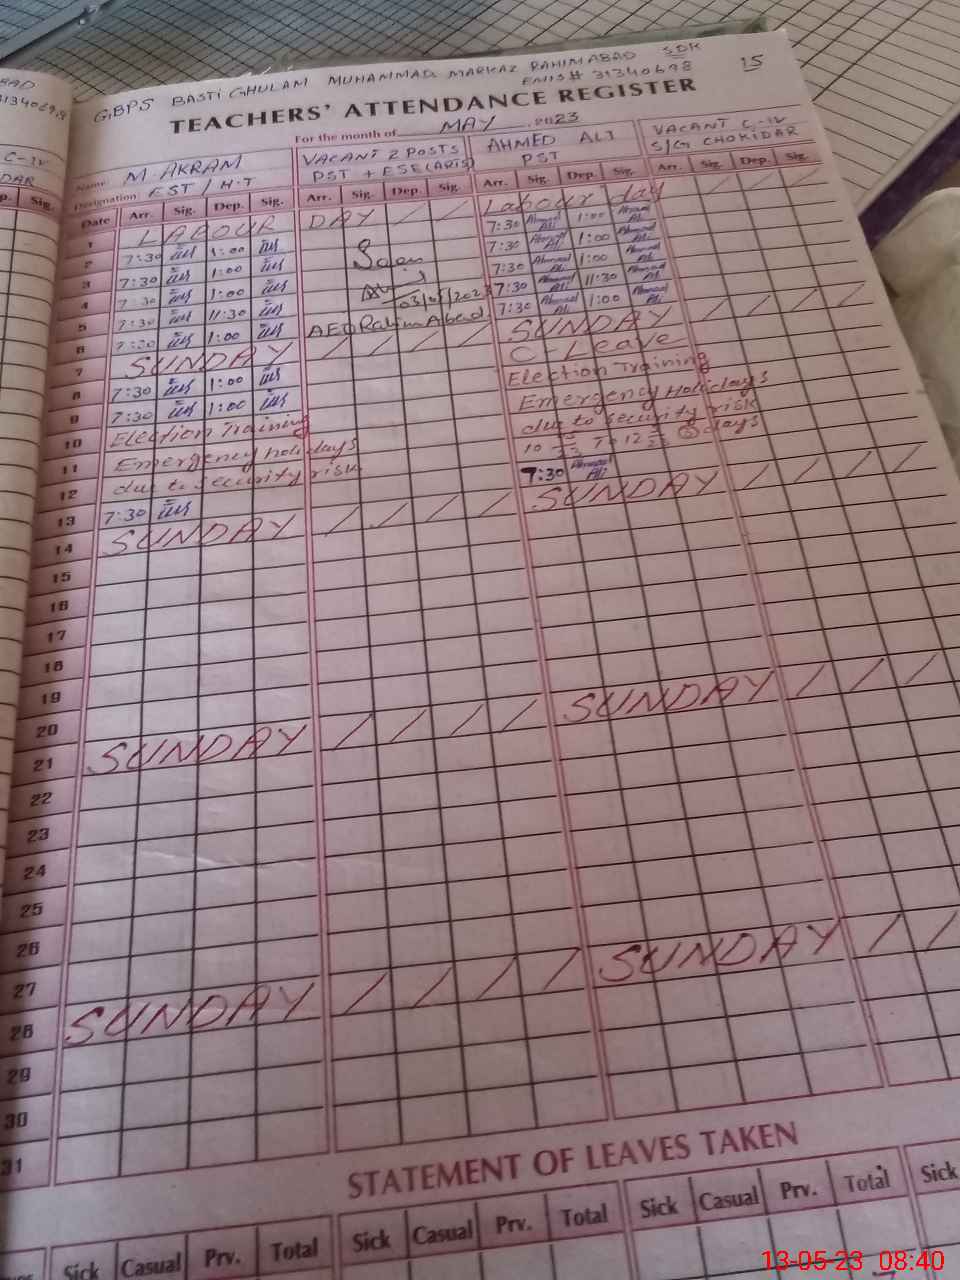 GBPS BASTI GHULAM MUHAMMAD MARKAZ RAHIMABAD SDK
EMIS# 31340698
15
TEACHERS' ATTENDANCE REGISTER
For the month of MAY 2023
Name M AKRAM VACANT 2 POSTS AHMED ALI VACANT C-IV
Designation EST / H.T PST + ESE (ARTS) PST S/G CHOKIDAR
Date Arr. Sig. Dep. Sig. Arr. Sig. Dep. Sig. Arr. Sig. Dep. Sig. Arr. Sig. Dep. Sig.
1 LABOUR DAY Labour day
2 7:30 1:00 7:30 Ahmad Ali 1:00 Ahmad Ali
3 7:30 1:00 7:30 Ahmad Ali 1:00 Ahmad Ali
4 7:30 1:00 03/05/2023 7:30 Ahmad Ali 1:00 Ahmad Ali
5 7:30 11:30 AEO Rahim Abad 7:30 Ahmad Ali 11:30 Ahmad Ali
6 7:30 1:00 7:30 Ahmad Ali 1:00 Ahmad Ali
7 SUNDAY / / / / SUNDAY / / / /
8 7:30 1:00 C-Leave
9 7:30 1:00 Election Training
10 Election Training Emergency Holidays
11 Emergency holidays due to security risk
12 due to security risk 10 To 12 days
13 7:30 7:30 Ahmad Ali
14 SUNDAY / / / / SUNDAY / / / /
15
16
17
18
19
20
21 SUNDAY / / / / SUNDAY / / /
22
23
24
25
26
27
28 SUNDAY / / / / SUNDAY / /
29
30
31
STATEMENT OF LEAVES TAKEN
Sick Casual Prv. Total Sick Casual Prv. Total Sick Casual Prv. Total Sick
13-05-23 08:40